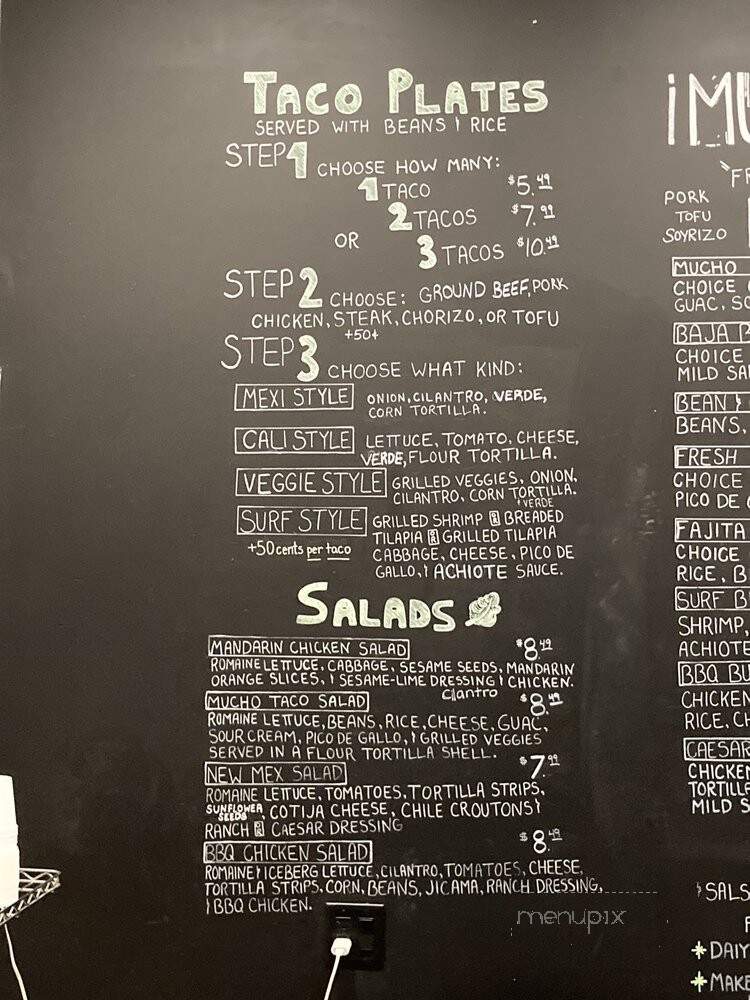 TACO PLATES
SERVED WITH BEANS & RICE
STEP 1 CHOOSE HOW MANY:
1 TACO $5.49
2 TACOS $7.99
OR 3 TACOS $10.49
STEP 2 CHOOSE: GROUND BEEF, PORK
CHICKEN, STEAK, CHORIZO, OR TOFU
+50¢
STEP 3 CHOOSE WHAT KIND:
MEXI STYLE ONION, CILANTRO, VERDE,
CORN TORTILLA.
CALI STYLE LETTUCE, TOMATO, CHEESE,
VERDE, FLOUR TORTILLA.
VEGGIE STYLE GRILLED VEGGIES, ONION,
CILANTRO, CORN TORTILLA.
& VERDE
SURF STYLE GRILLED SHRIMP OR BREADED
+50 cents per taco TILAPIA OR GRILLED TILAPIA
CABBAGE, CHEESE, PICO DE
GALLO, & ACHIOTE SAUCE.
SALADS
MANDARIN CHICKEN SALAD $8.49
ROMAINE LETTUCE, CABBAGE, SESAME SEEDS, MANDARIN
ORANGE SLICES, & SESAME-LIME DRESSING & CHICKEN.
Cilantro
MUCHO TACO SALAD $8.49
ROMAINE LETTUCE, BEANS, RICE, CHEESE, GUAC,
SOUR CREAM, PICO DE GALLO, & GRILLED VEGGIES
SERVED IN A FLOUR TORTILLA SHELL.
NEW MEX SALAD $7.99
ROMAINE LETTUCE, TOMATOES, TORTILLA STRIPS,
SUNFLOWER SEEDS, COTIJA CHEESE, CHILE CROUTONS &
RANCH OR CAESAR DRESSING
BBQ CHICKEN SALAD $8.49
ROMAINE & ICEBERG LETTUCE, CILANTRO, TOMATOES, CHEESE,
TORTILLA STRIPS, CORN, BEANS, JICAMA, RANCH DRESSING,
& BBQ CHICKEN.
¡MU
"FR
PORK
TOFU
SOYRIZO
MUCHO
CHOICE
GUAC, SO
BAJA B
CHOICE
MILD SA
BEAN &
BEANS,
FRESH
CHOICE
PICO DE
FAJITA
CHOICE
RICE, B
SURF B
SHRIMP,
ACHIOTE
BBQ BU
CHICKEN
RICE, CH
CAESAR
CHICKEN
TORTILLA
MILD S
SALS
DAIY
MAKE
menupix